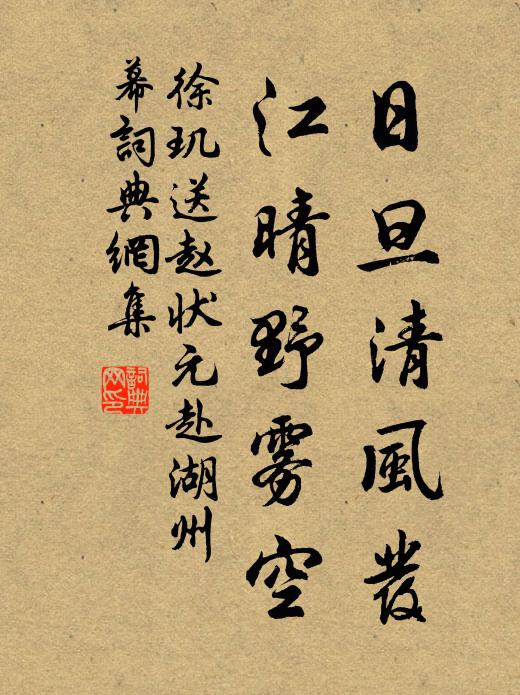 日旦清風發
江晴野雾空
徐玑送赵状元赴湖州
幕詞典網集
詞典网印